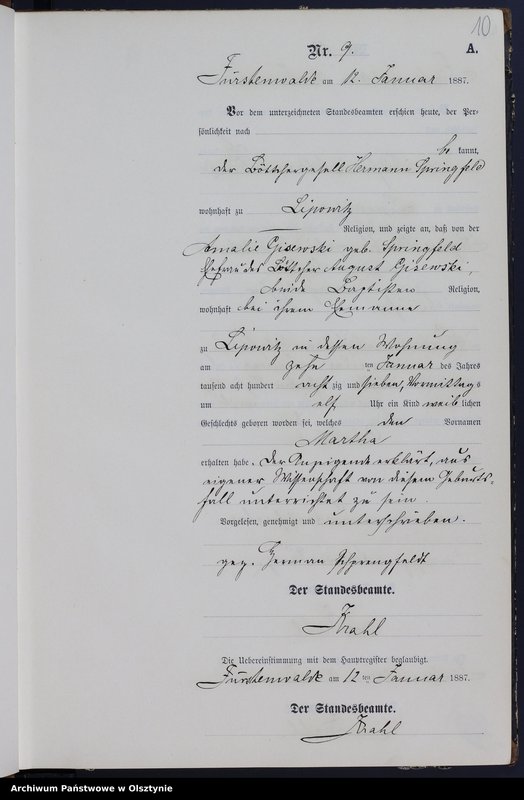 10
Nr. 9.
A.
Fürstenwalde am 12. Januar 1887.
Vor dem unterzeichneten Standesbeamten erschien heute, der Per-
sönlichkeit nach
be kannt,
der Böttchergesell Hermann Springfeld
wohnhaft zu Lipowitz
Religion, und zeigte an, daß von der
Amalie Gisewski geb. Springfeld
Ehefrau des Böttcher August Gisewski,
beide Baptisten Religion,
wohnhaft bei ihrem Ehemanne
zu Lipowitz in dessen Wohnung
am zehn ten Januar des Jahres
tausend acht hundert acht zig und sieben, Vormittag s
um elf Uhr ein Kind weib lichen
Geschlechts geboren worden sei, welches den Vornamen
Martha
erhalten habe. Der Anzeigende erklärt, aus
eigener Wissenschaft von diesem Geburts-
fall unterrichtet zu sein.
Vorgelesen, genehmigt und unterschrieben.
gez. Herman Schprengfeldt
Der Standesbeamte.
Krahl
Die Uebereinstimmung mit dem Hauptregister beglaubigt.
Fürstenwalde am 12 ten Januar 1887.
Der Standesbeamte.
Krahl
Archiwum Państwowe w Olsztynie